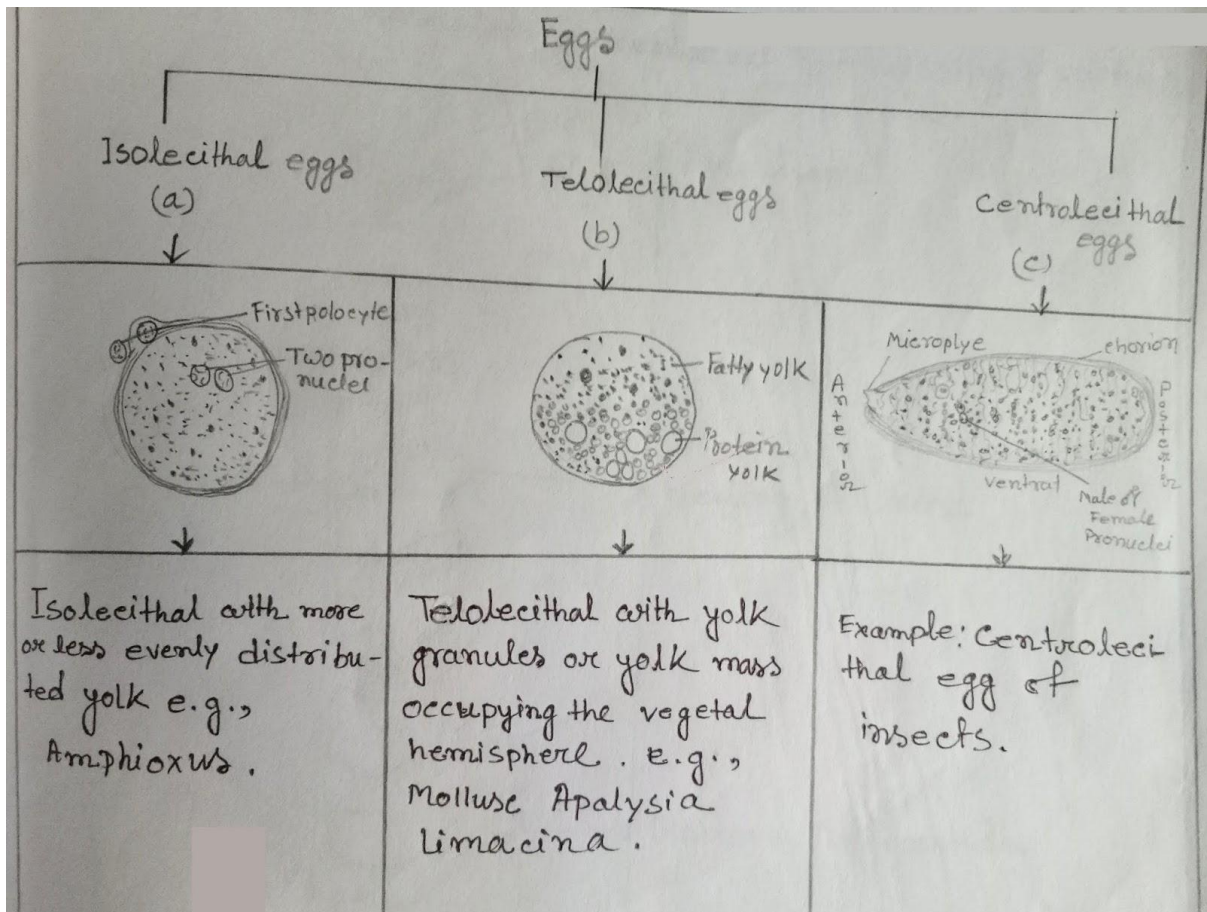 Eggs
Isolecithal eggs
(a)
Telolecithal eggs
(b)
Centrolecithal
eggs
(c)
First polocyte
Two pro-
nuclei
Fatty yolk
Protein
yolk
Microplye
chorion
Anterior
Posterior
ventrat
Male of
Female
Pronuclei
Isolecithal with more
or less evenly distribu-
ted yolk e.g.,
Amphioxus.
Telolecithal with yolk
granules or yolk mass
occupying the vegetal
hemisphere. e.g.,
Mollusc Apalysia
Limacina.
Example: Centroleci-
thal egg of
insects.